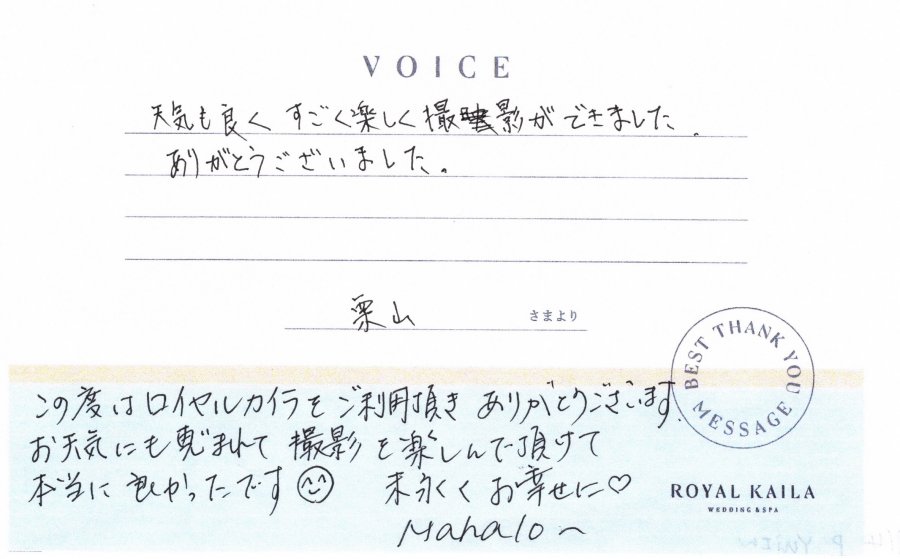 VOICE
天気も良く すごく楽しく撮影ができました.
ありがとうございました.
栗山 さまより
BEST THANK YOU MESSAGE
この度はロイヤルカイラをご利用頂き ありがとうございます.
お天気にも恵まれて 撮影を楽しんで頂けて
本当に良かったです 末永くお幸せに♡
Mahalo~
ROYAL KAILA
WEDDING & SPA